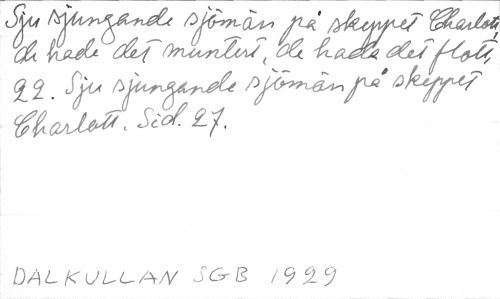 Sju sjungande sjömän på skeppet Charlott,
de hade det muntert, de hade det flott,
22. Sju sjungande sjömän på skeppet
Charlott. Sid. 27.
DALKULLAN SGB 1929